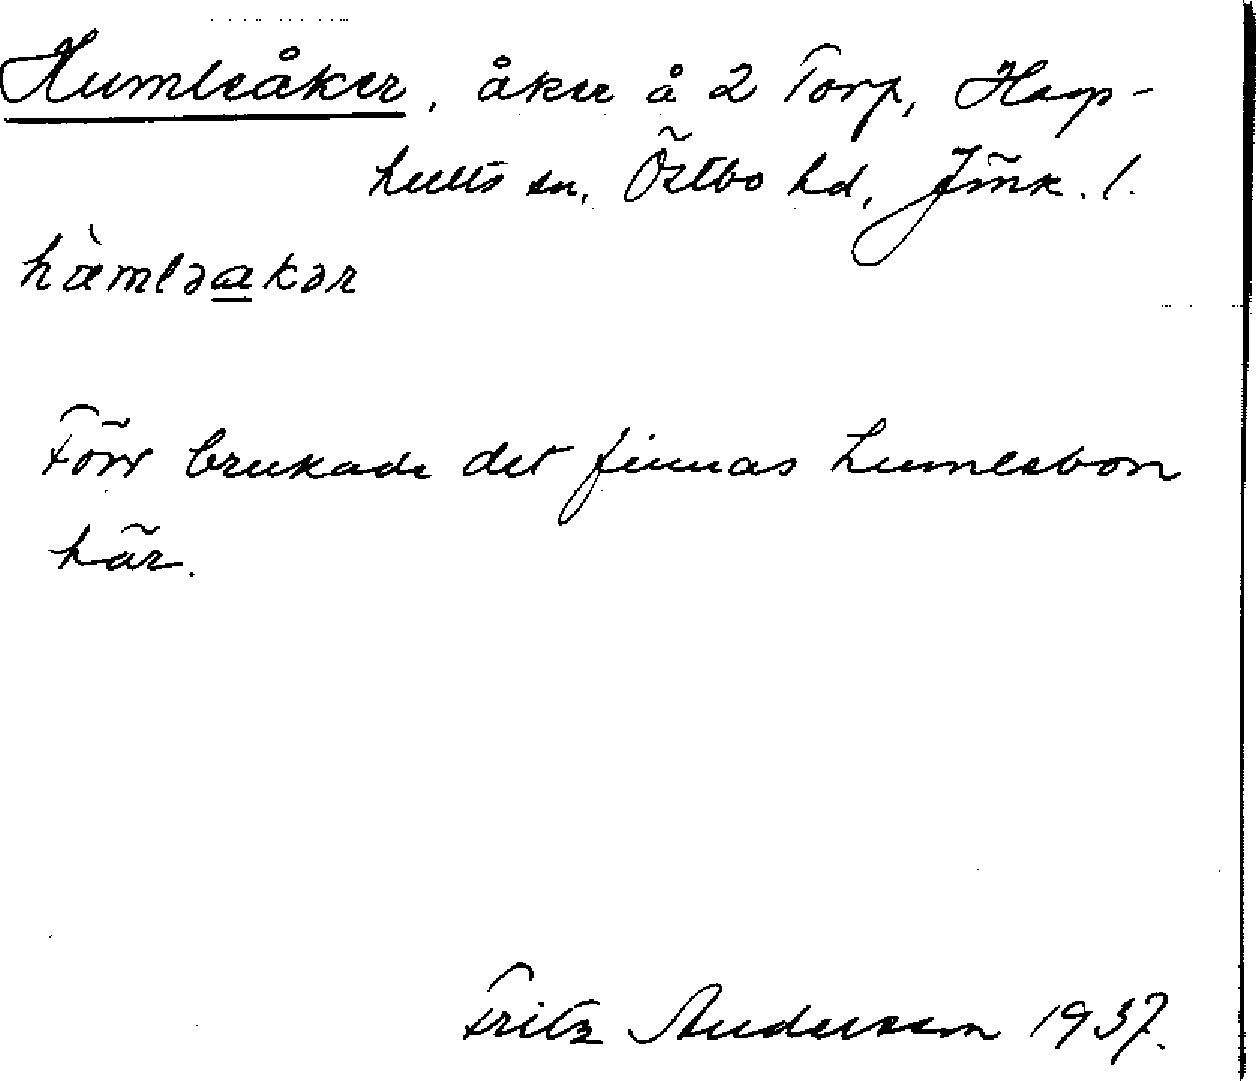 Humleåker, åker å 2 Torp, Hags-
hults sn, Östbo hd, Jönk. l.
hæ̀mləakər
Förr brukade det finnas humlebon
här.
Fritz Andersson 1937.